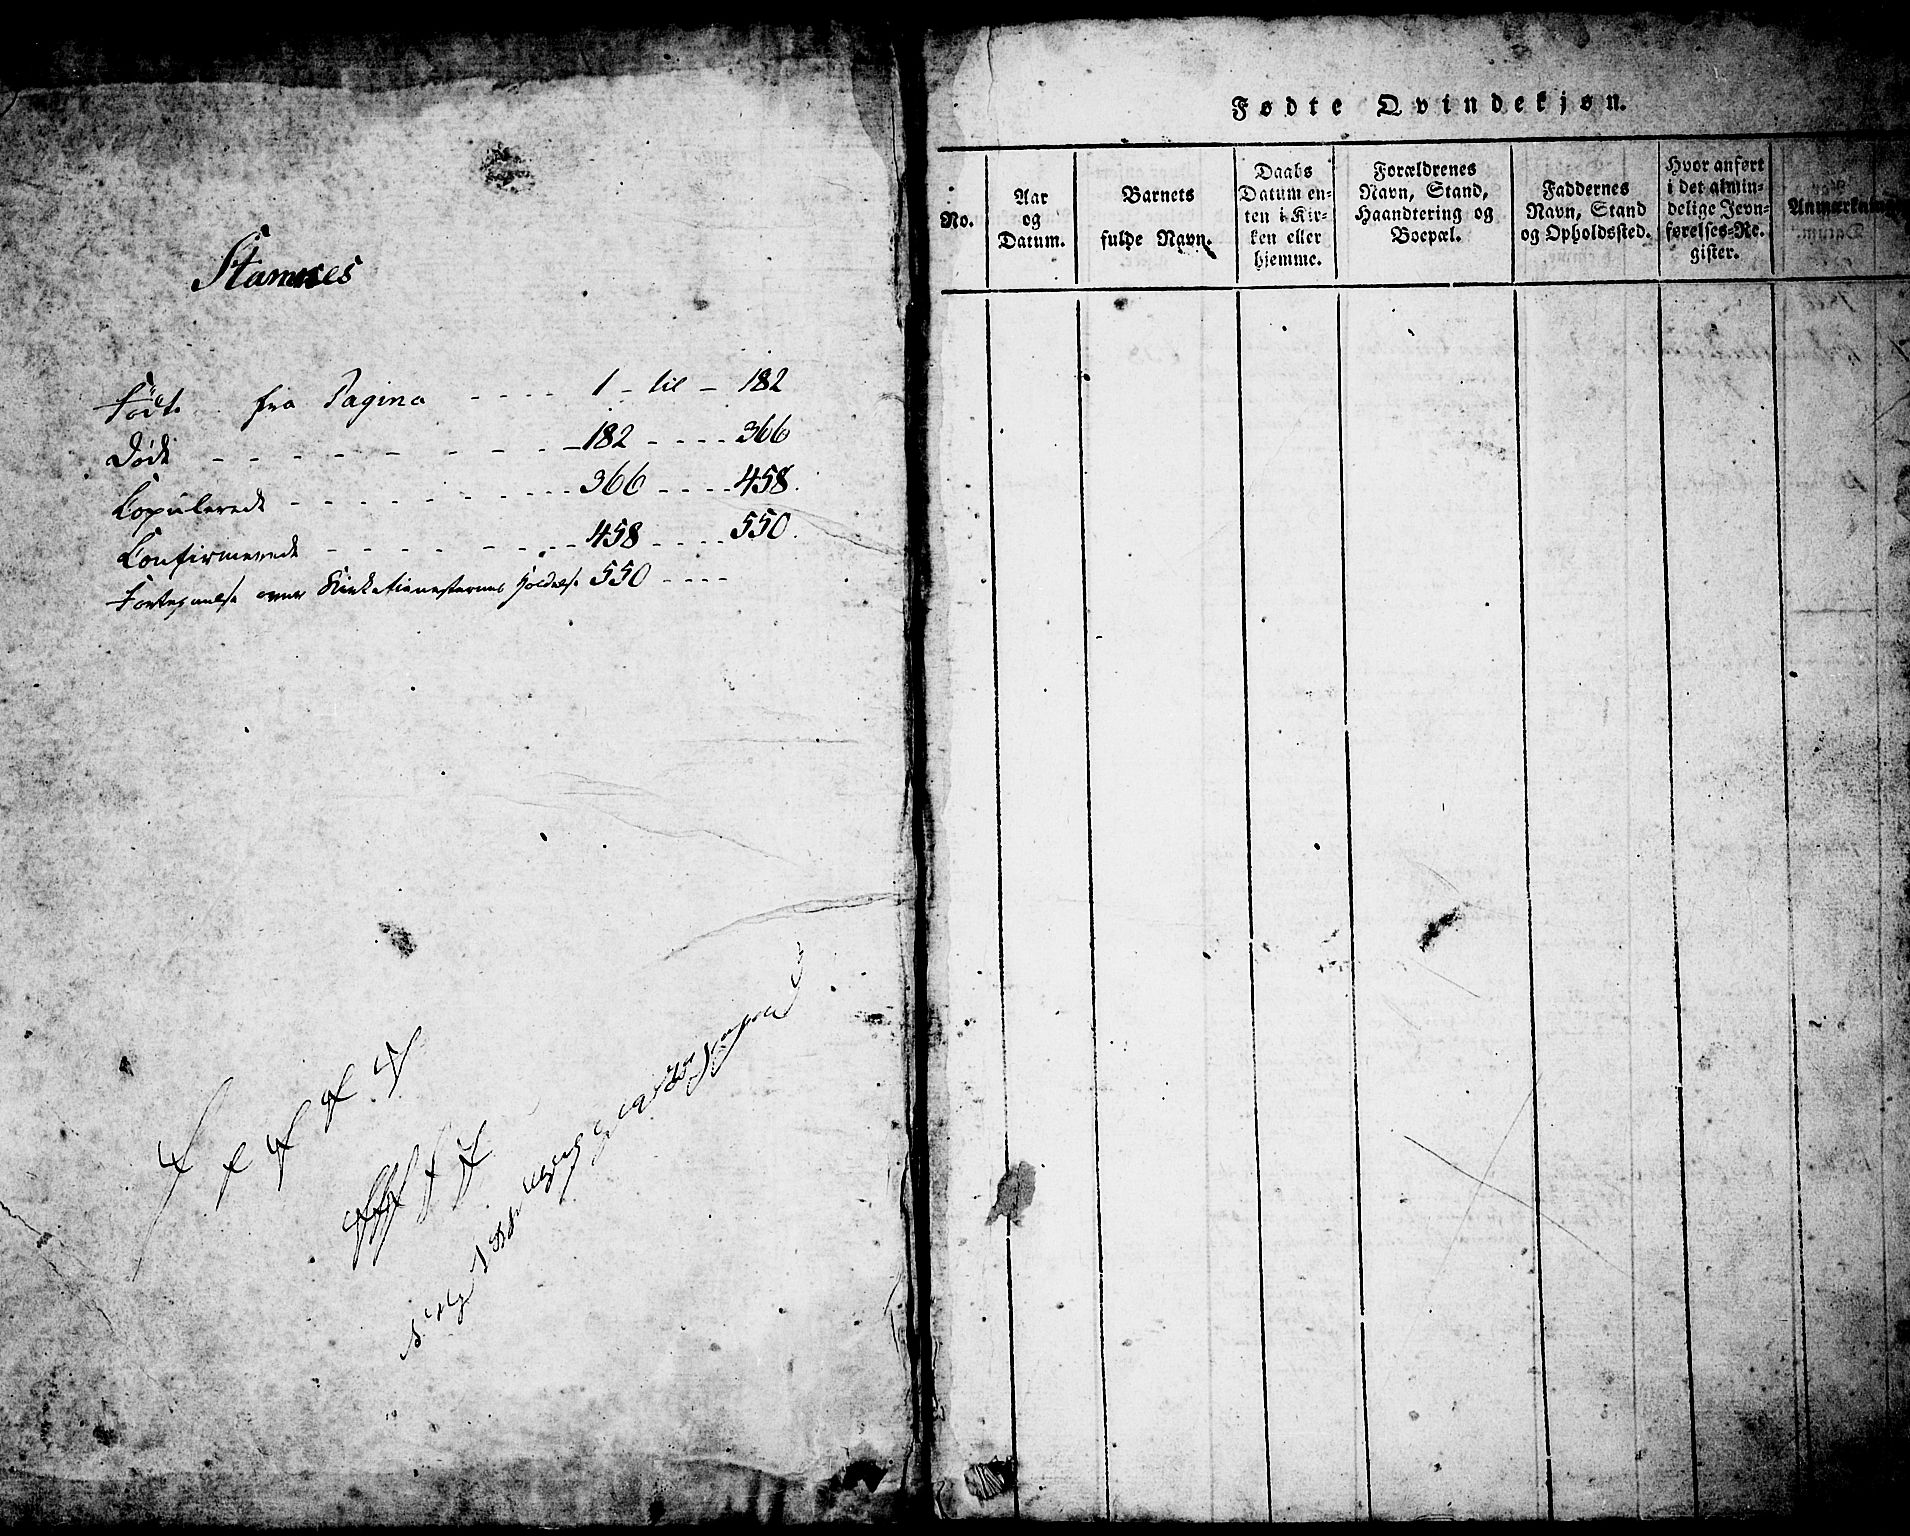 Stamnes
Födte fra Pagina - - - - 1 - til - 182
Döde - - - - - - - - - 182 - - - - 366
Copulerede - - - - - - - - - - 366 - - - - 458.
Confirmerede - - - - - - - - 458 - - - - 550.
Fortegnelse over 550 - - - -
Fødte Qvindekjøn.
No.
Aar
og
Datum.
Barnets
fulde Navn.
Daabs
Datum en-
ten i Kir-
ken eller
hjemme.
Forældrenes
Navn, Stand,
Haandtering og
Boepæl.
Faddernes
Navn, Stand
og Opholdssted.
Hvor anført
i det almin-
delige Jevn-
førelses-Re-
gister.